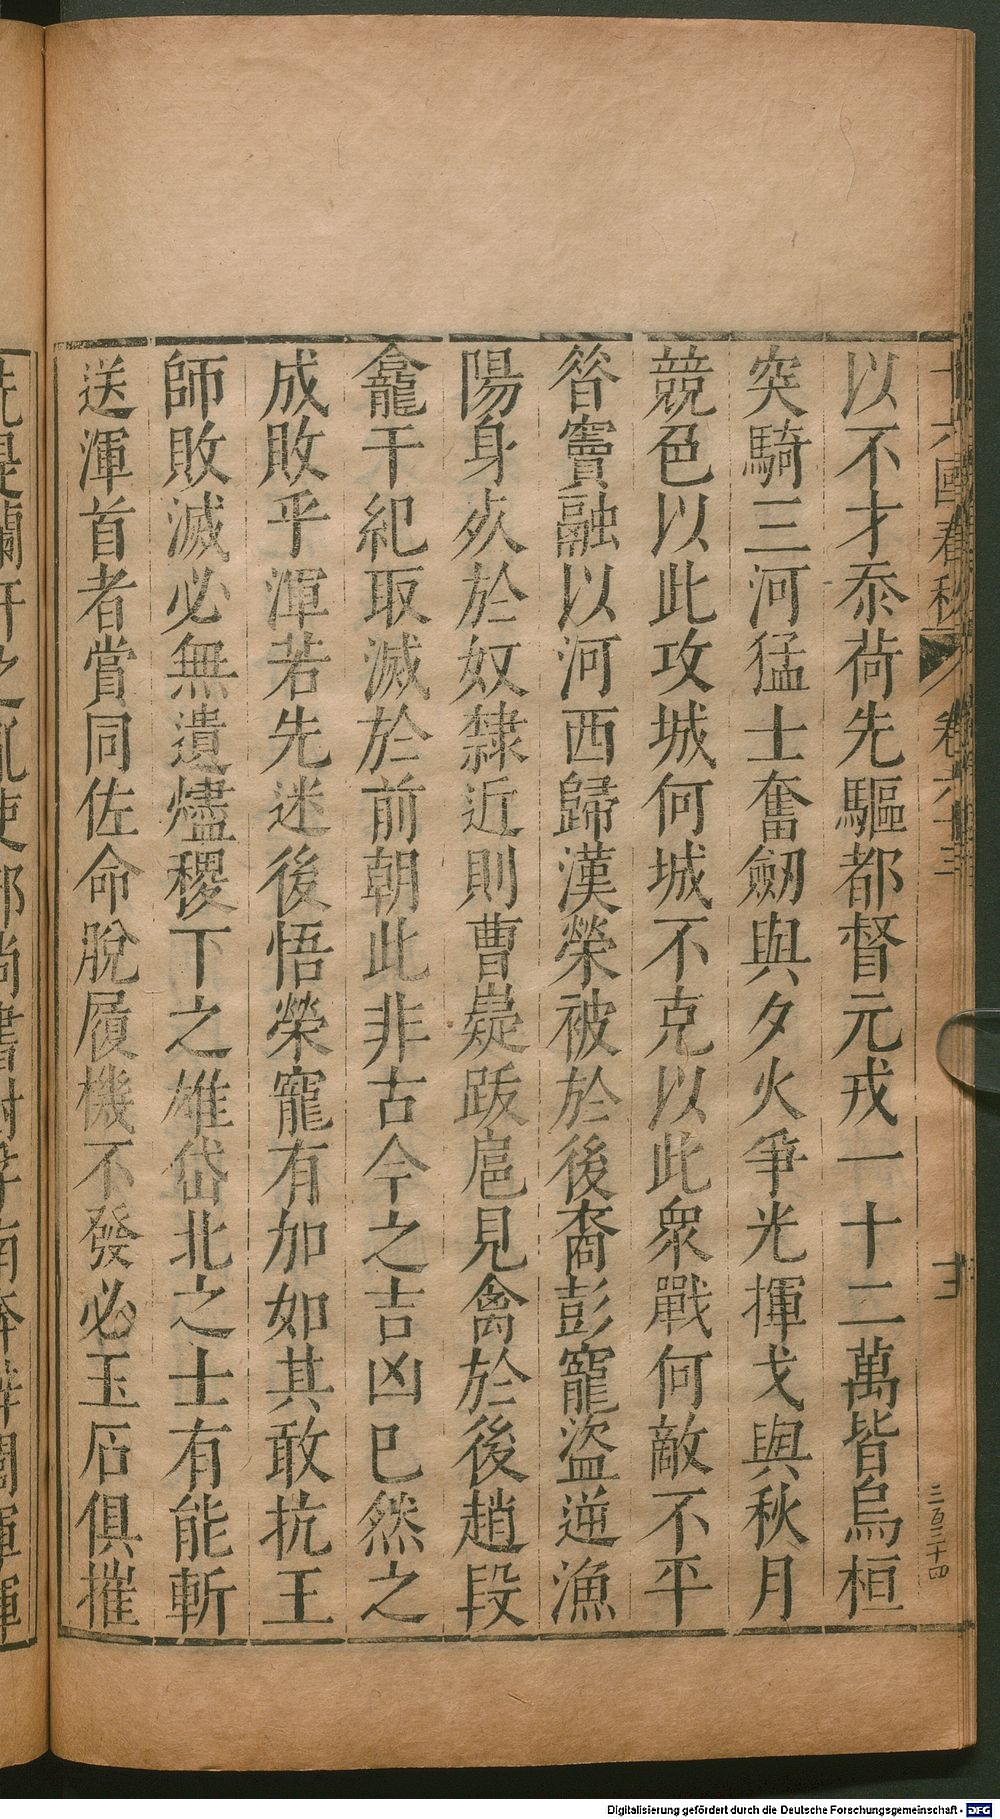 十六國春秋 卷六十三 十三 三百三十四
以不才忝荷先驅都督元戎一十二萬皆烏桓
突騎三河猛士奮劒與夕火爭光揮戈與秋月
競色以此攻城何城不克以此衆戰何敵不平
昝竇融以河西歸漢榮被於後裔彭寵盜逆漁
陽身夾於奴隸近則曹嶷跋扈見禽於後趙段
龕干紀取滅於前朝此非古今之吉凶巳然之
成敗乎渾若先迷後悟榮寵有加如其敢抗王
師敗滅必無遺燼稷下之雄岱北之士有能斬
送渾首者賞同佐命脫履機不發必玉石俱摧
Digitalisierung gefördert durch die Deutsche Forschungsgemeinschaft - DFG